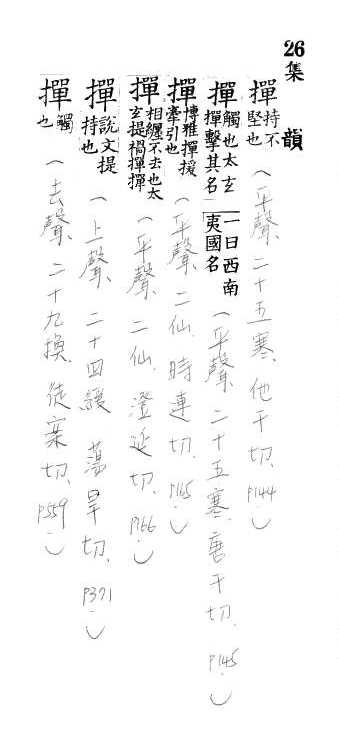 26集韻
撣持不堅也（平聲、二十五寒、他干切、P144）
撣觸也太玄撣擊其名一曰西南夷國名（平聲、二十五寒、唐干切、P145）
撣博雅撣援牽引也（平聲、二仙、時連切、P165）
撣相纏不去也太玄提禍撣撣（平聲、二仙、澄延切、P166）
撣說文提持也（上聲、二十四緩、蕩旱切、P371）
撣觸也（去聲、二十九換、徒案切、P559）